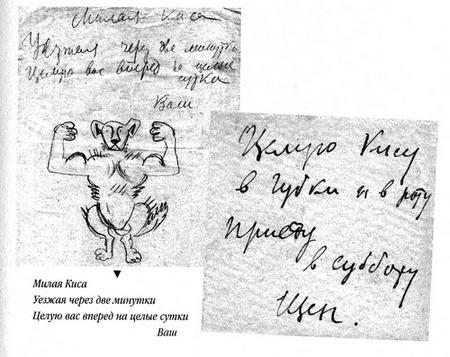 Милая Киса
Уезжая через две минутки
Целую вас вперед на целые
сутки
Ваш
Целую Кису
в губки и в роту
Приеду
в субботу
Щен.
Милая Киса
Уезжая через две минутки
Целую вас вперед на целые сутки
Ваш